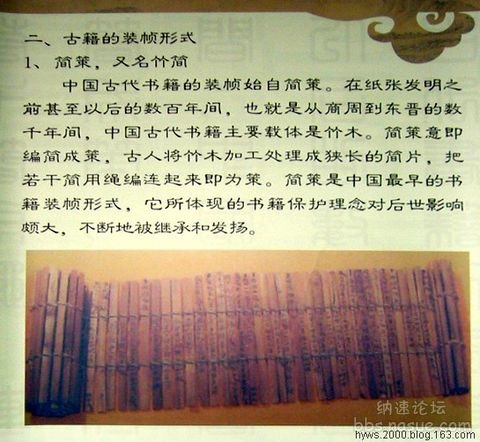 二、古籍的装帧形式
1、简策，又名竹简
中国古代书籍的装帧始自简策。在纸张发明之
前甚至以后的数百年间，也就是从商周到东晋的数
千年间，中国古代书籍主要载体是竹木。简策意即
编简成策，古人将竹木加工处理成狭长的简片，把
若干简用绳编连起来即为策。简策是中国最早的书
籍装帧形式，它所体现的书籍保护理念对后世影响
颇大，不断地被继承和发扬。
纳速论坛
bbs.nasue.com
hyws.2000.blog.163.com